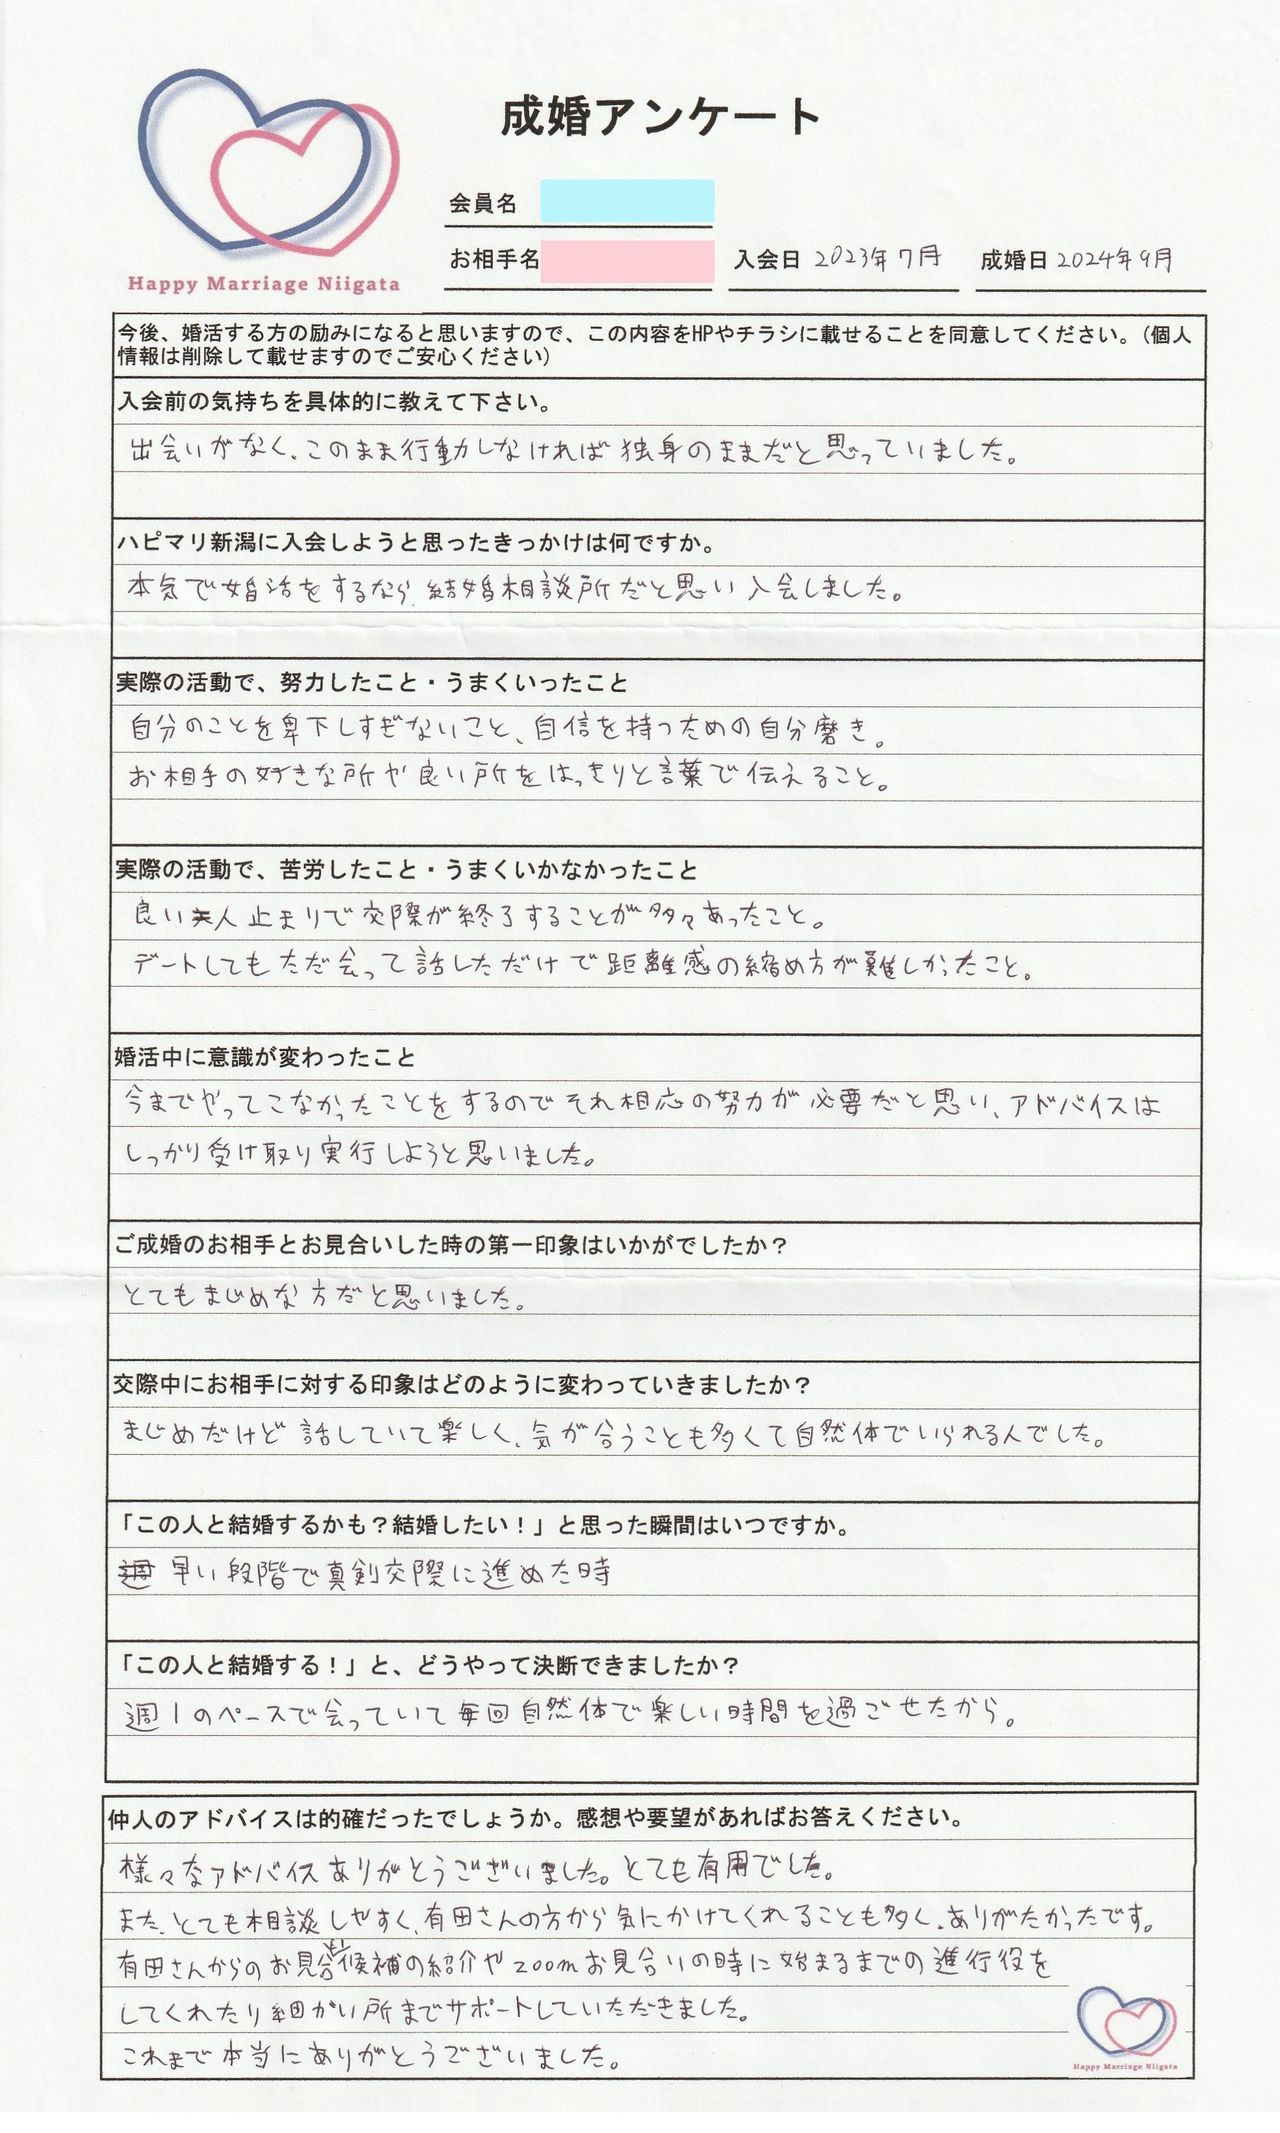 成婚アンケート
会員名
お相手名 入会日 2023年7月 成婚日 2024年9月
Happy Marriage Niigata
今後、婚活する方の励みになると思いますので、この内容をHPやチラシに載せることを同意してください。(個人
情報は削除して載せますのでご安心ください)
入会前の気持ちを具体的に教えて下さい。
出会いがなく、このまま行動しなければ独身のままだと思っていました。
ハピマリ新潟に入会しようと思ったきっかけは何ですか。
本気で婚活をするなら、結婚相談所だと思い入会しました。
実際の活動で、努力したこと・うまくいったこと
自分のことを卑下しすぎないこと、自信を持つための自分磨き。
お相手の好きな所や良い所をはっきりと言葉で伝えること。
実際の活動で、苦労したこと・うまくいかなかったこと
良い人止まりで交際が終了することが多々あったこと。
デートしてもただ会って話しただけで距離感の縮め方が難しかったこと。
婚活中に意識が変わったこと
今までやってこなかったことをするのでそれ相応の努力が必要だと思い、アドバイスは
しっかり受け取り実行しようと思いました。
ご成婚のお相手とお見合いした時の第一印象はいかがでしたか?
とてもまじめな方だと思いました。
交際中にお相手に対する印象はどのように変わっていきましたか?
まじめだけど話していて楽しく、気が合うことも多くて自然体でいられる人でした。
「この人と結婚するかも?結婚したい!」と思った瞬間はいつですか。
早い段階で真剣交際に進めた時
「この人と結婚する!」と、どうやって決断できましたか?
週1のペースで会っていて毎回自然体で楽しい時間を過ごせたから。
仲人のアドバイスは的確だったでしょうか。感想や要望があればお答えください。
様々なアドバイスありがとうございました。とても有用でした。
また、とても相談しやすく、有田さんの方から気にかけてくれることも多く、ありがたかったです。
有田さんからのお見合い候補の紹介やzoomお見合いの時に始まるまでの進行役を
してくれたり細かい所までサポートしていただきました。
これまで本当にありがとうございました。
Happy Marriage Niigata